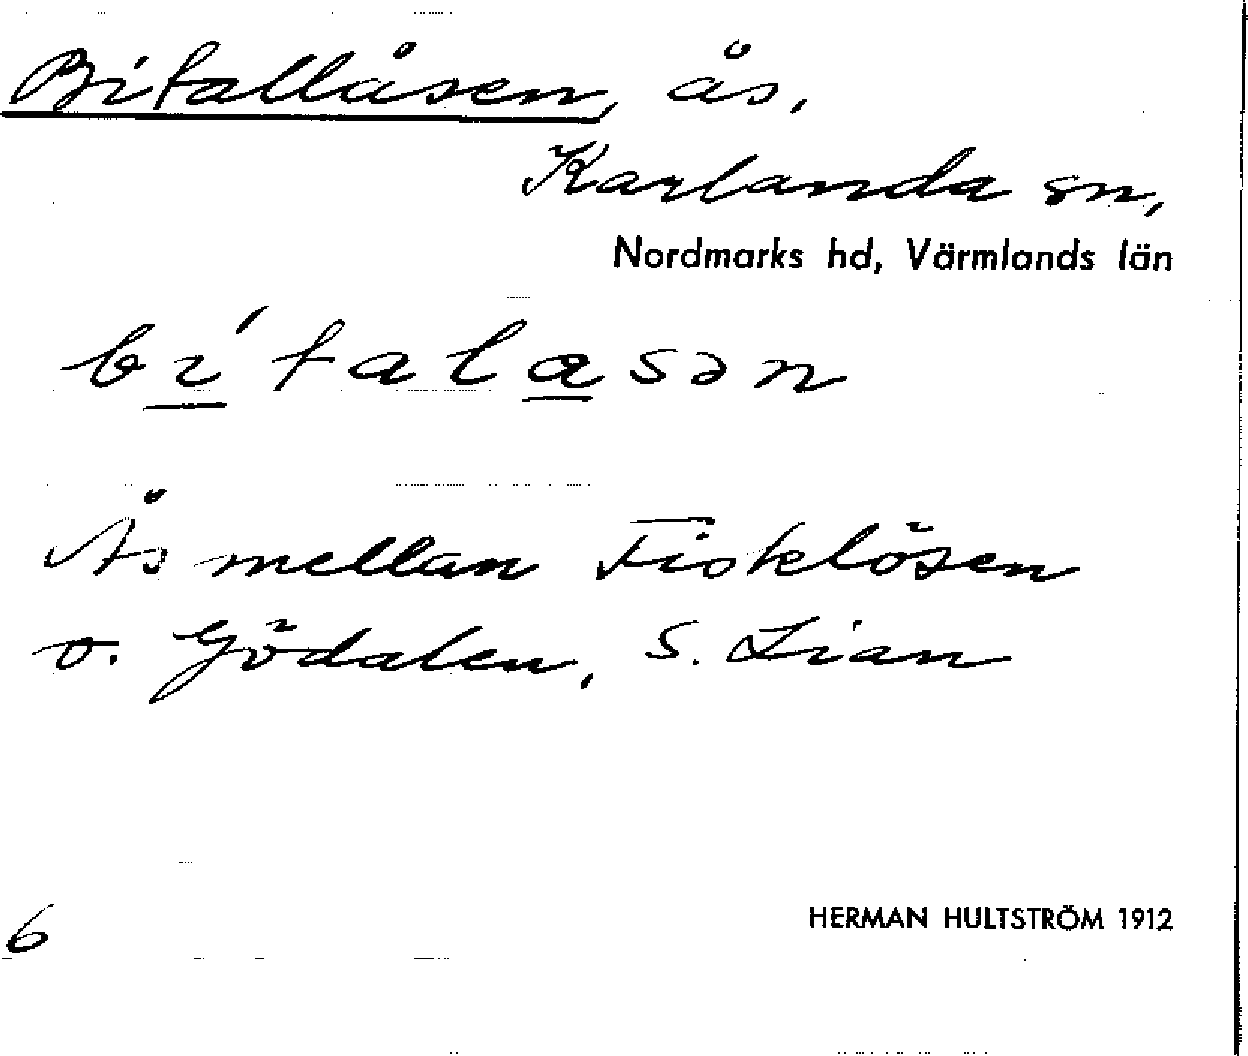 Bitallåsen, ås,
Karlanda sn,
Nordmarks hd, Värmlands län
bítalasən
Ås mellan Fisklösen
o. Gödalen, S. Lian
HERMAN HULTSTRÖM 1912
6